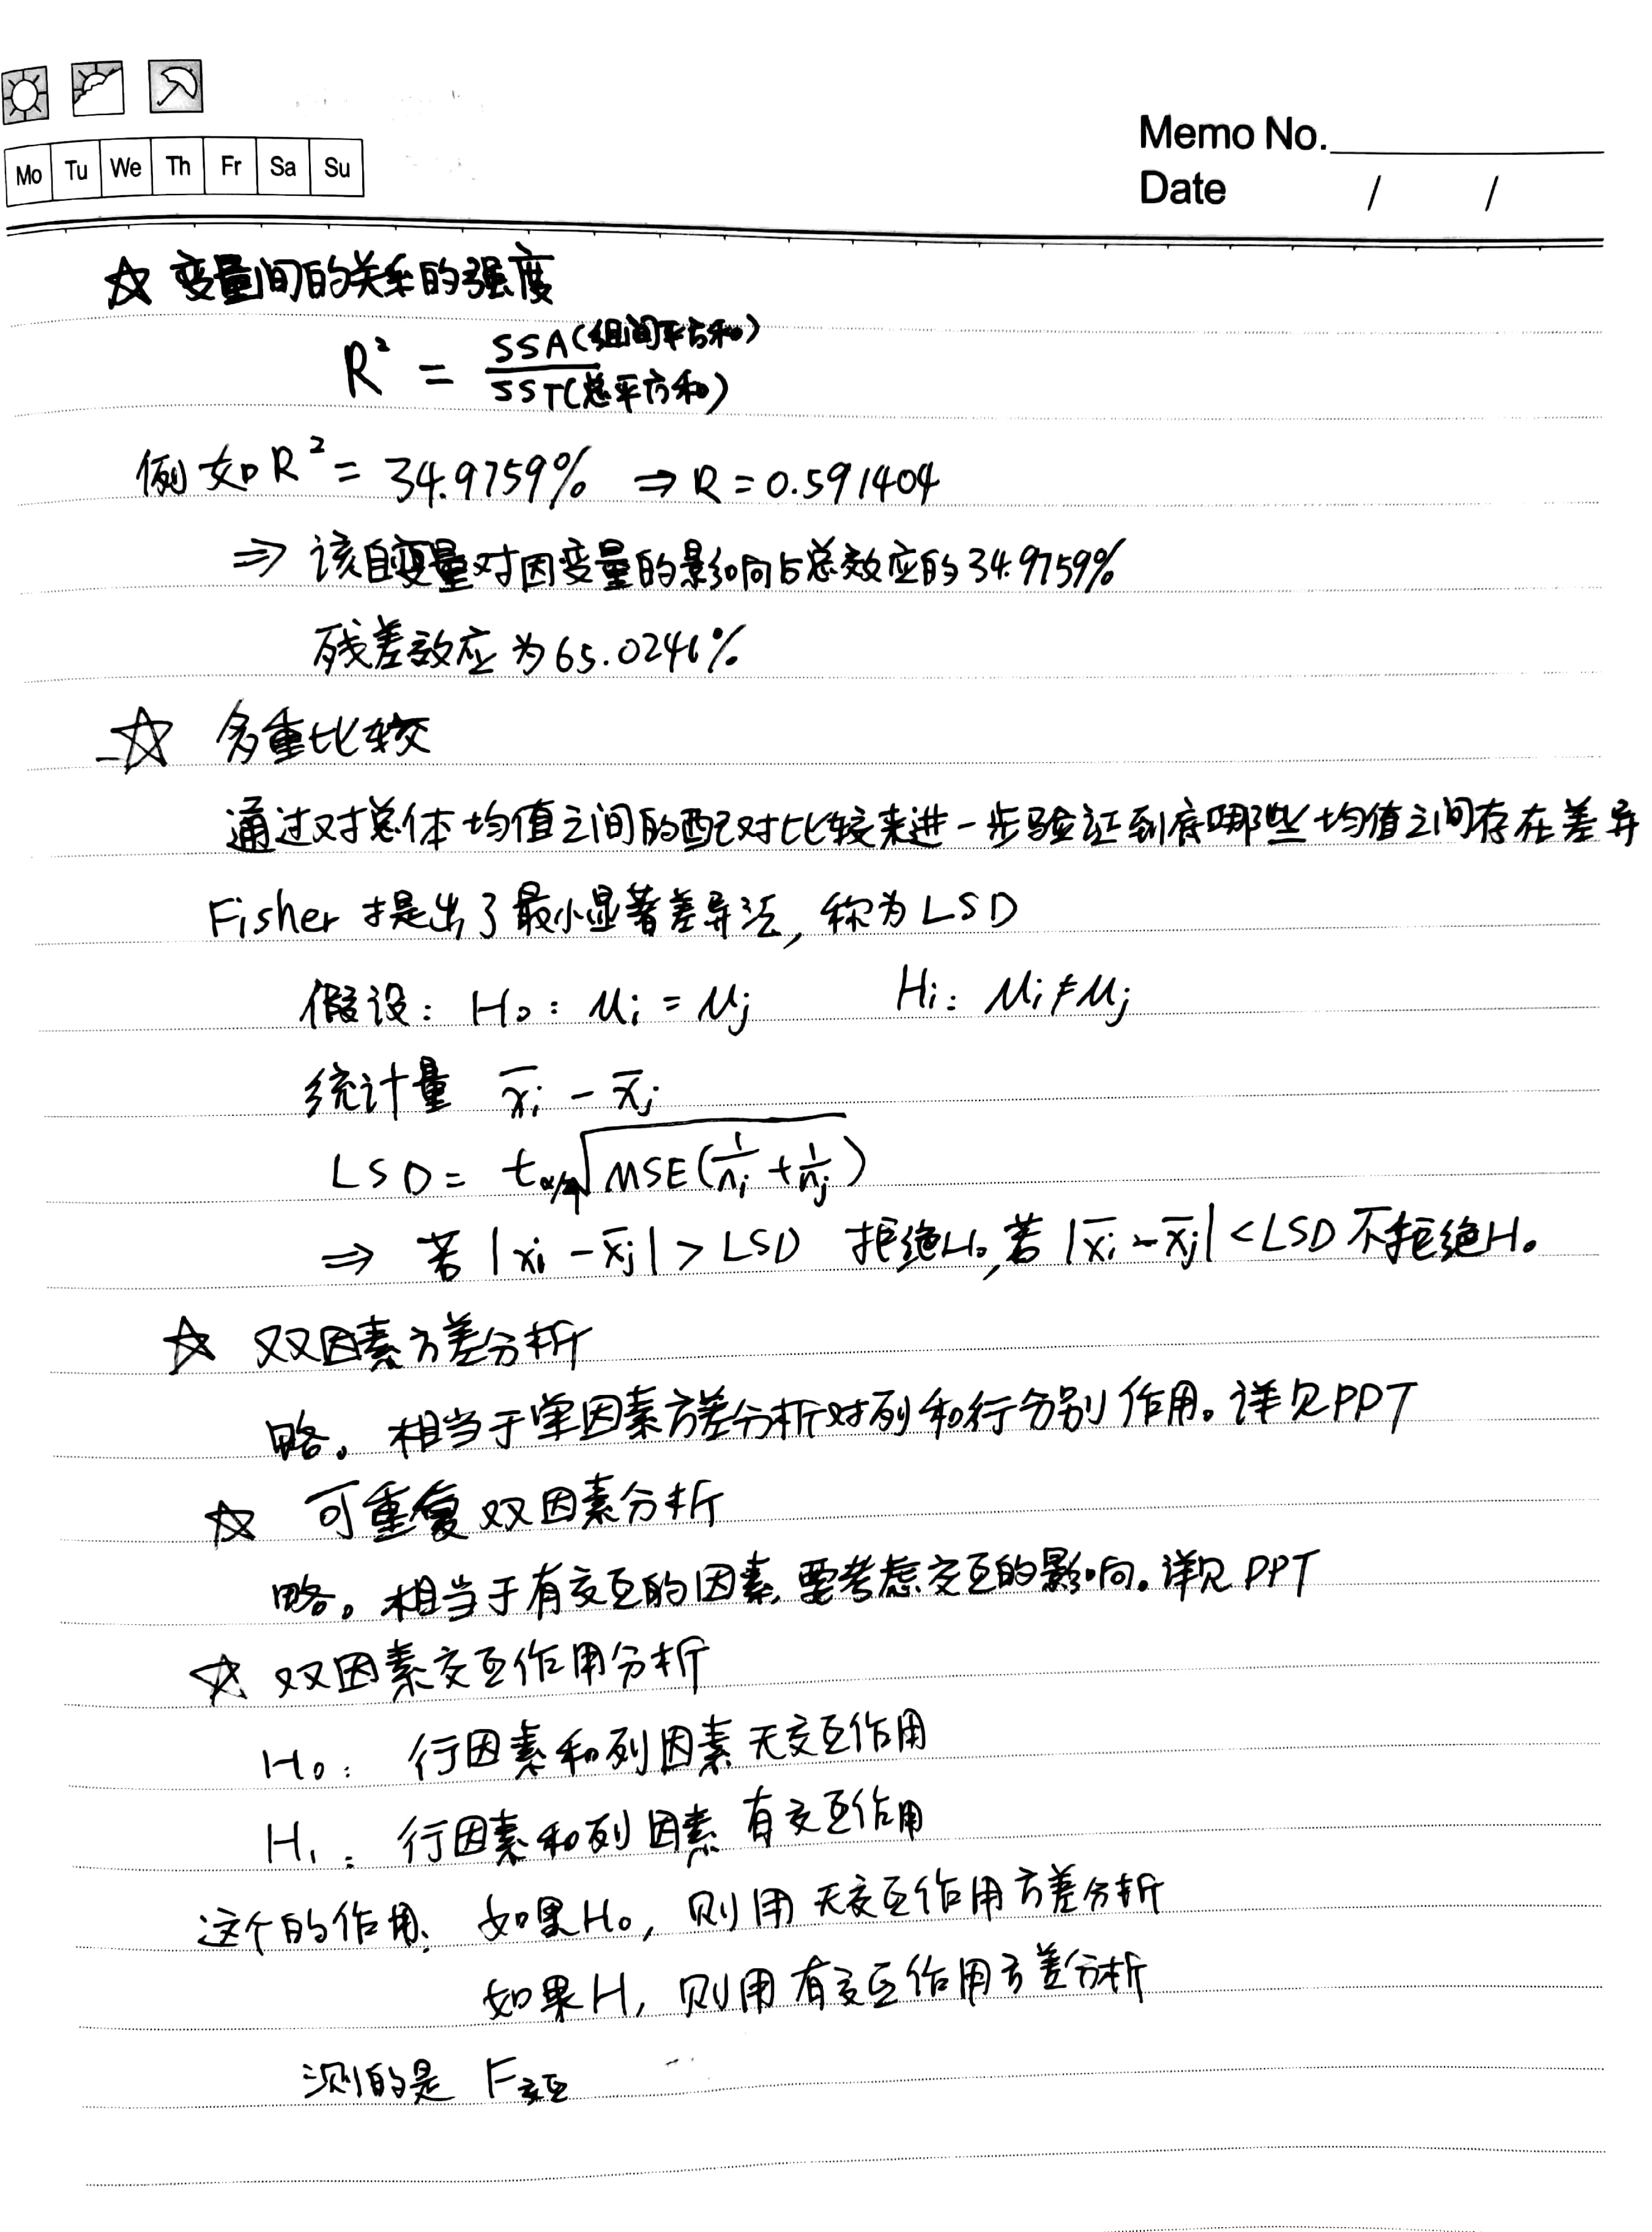 Mo Tu We Th Fr Sa Su
Memo No.
Date / /
☆ 变量间的关系的强度
R² = SSA(组间平方和) / SST(总平方和)
例如R² = 34.9759% ⇒ R = 0.591404
⇒ 该自变量对因变量的影响占总效应的34.9759%
残差效应为65.0241%
☆ 多重比较
通过对总体均值之间的配对比较来进一步验证到底哪些均值之间存在差异
Fisher 提出了最小显著差异法, 称为LSD
假设: H₀: μi = μj Hi: μi ≠ μj
统计量 x̄i - x̄j
LSD = tα/ √MSE(1/ni + 1/nj)
⇒ 若 |xi - x̄j| > LSD 拒绝H₀, 若 |x̄i - x̄j| < LSD 不拒绝H₀
☆ 双因素方差分析
略。相当于单因素方差分析对列和行分别作用。详见PPT
☆ 可重复双因素分析
略。相当于有交互的因素, 要考虑交互的影响。详见PPT
☆ 双因素交互作用分析
H₀: 行因素和列因素无交互作用
H₁: 行因素和列因素有交互作用
这个的作用: 如果H₀, 则用无交互作用方差分析
如果H₁ 则用有交互作用方差分析
测的是 F交互